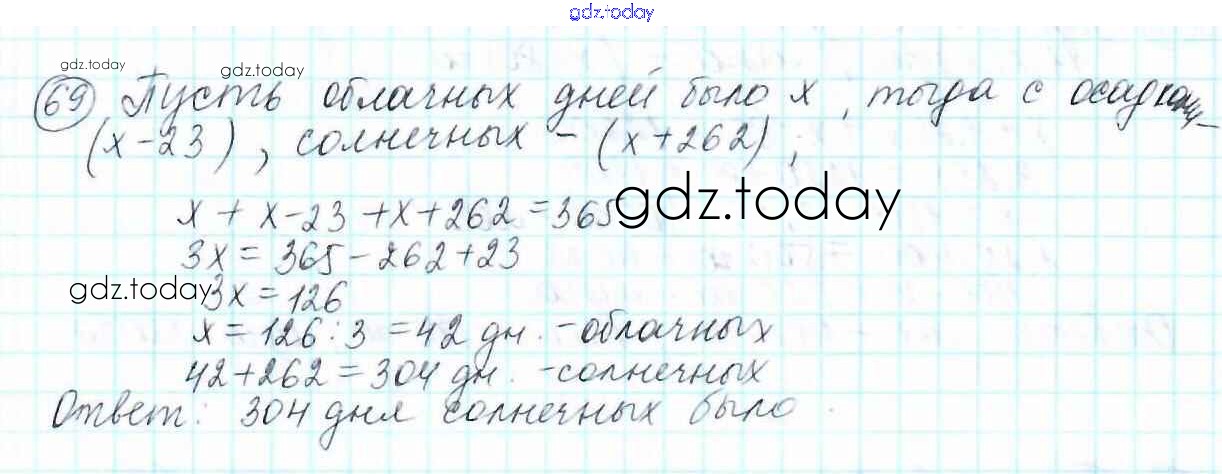 gdz.today
gdz.today
gdz.today
69 Пусть облачных дней было x, тогда с осадками -
(x-23), солнечных - (x+262);
x + x-23 + x+262 = 365
gdz.today
3x = 365-262+23
gdz.today
3x = 126
x = 126:3 = 42 дн. - облачных
42+262 = 304 дн. - солнечных
Ответ: 304 дня солнечных было.